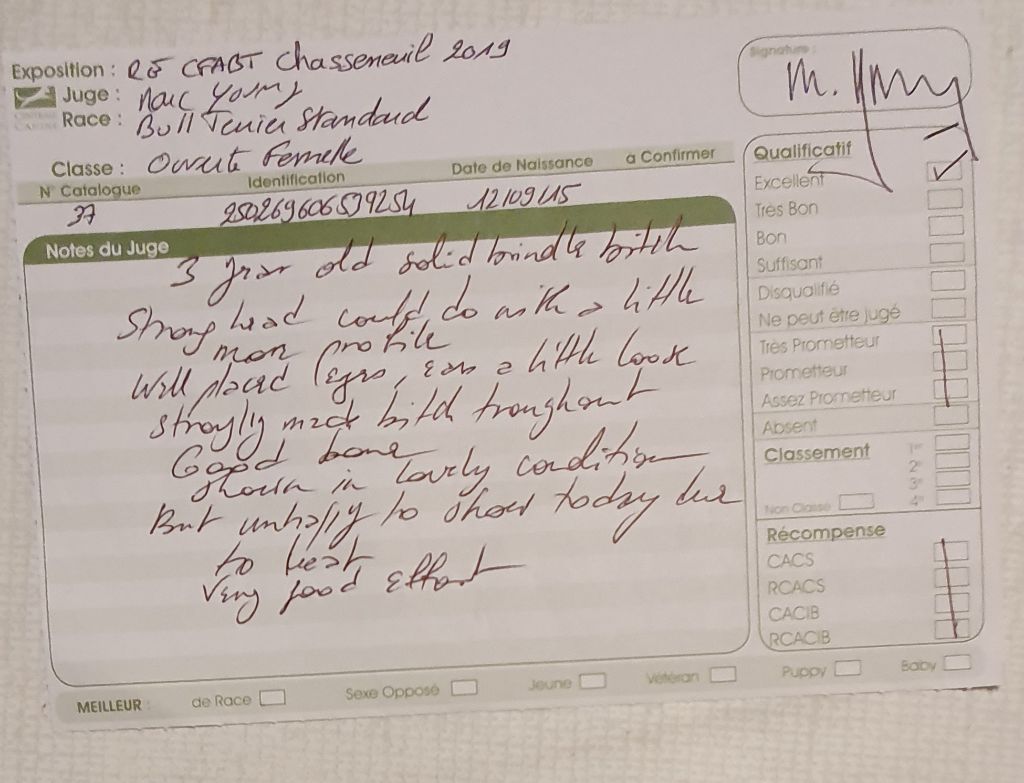 Exposition : RE CFABT Chasseneuil 2019
Juge : Marc Young
Race : Bull Terrier Standard
Classe : Ouverte Femelle
N° Catalogue Identification Date de Naissance à Confirmer
37 250269606539254 12/09/15
Notes du Juge
3 year old solid brindle bitch
Strong head could do with a little
more profile
Well placed eyes, ears a little loose
Strongly made bitch troughout
Good bone
shown in lovely condition
But unhappy to show today due
to heat
Very good effort
Signature :
M. Young
Qualificatif
Excellent
Très Bon
Bon
Suffisant
Disqualifié
Ne peut être jugé
Très Prometteur
Prometteur
Assez Prometteur
Absent
Classement 1er
2e
3e
4e
Non Classé
Récompense
CACS
RCACS
CACIB
RCACIB
MEILLEUR : de Race Sexe Opposé Jeune Vétéran Puppy Baby